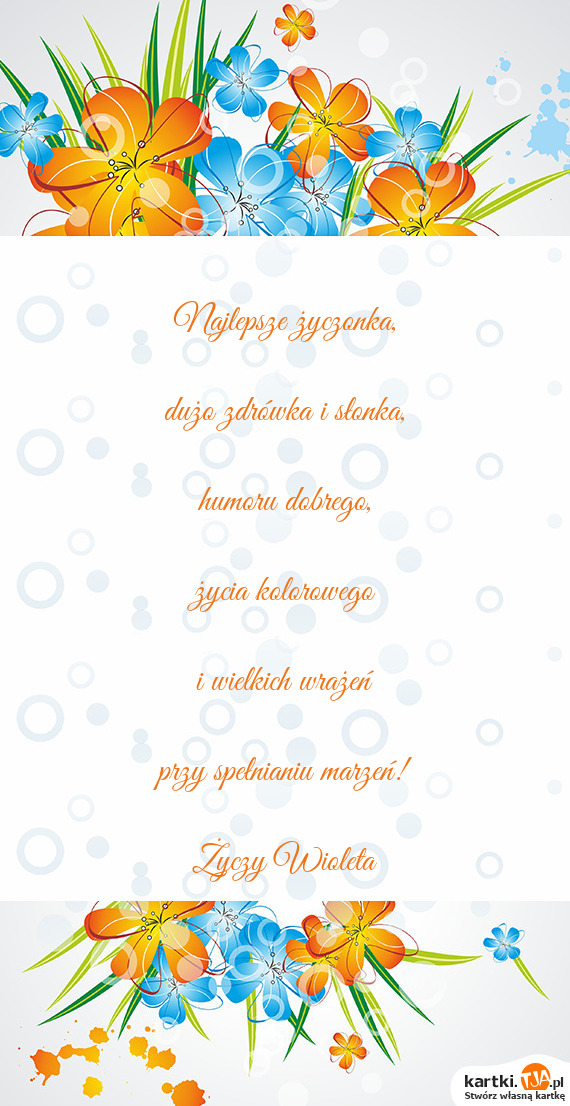 Najlepsze życzonka,
dużo zdrówka i słonka,
humoru dobrego,
życia kolorowego
i wielkich wrażeń
przy spełnianiu marzeń!
Życzy Wioleta
kartki.TJA.pl
Stwórz własną kartkę